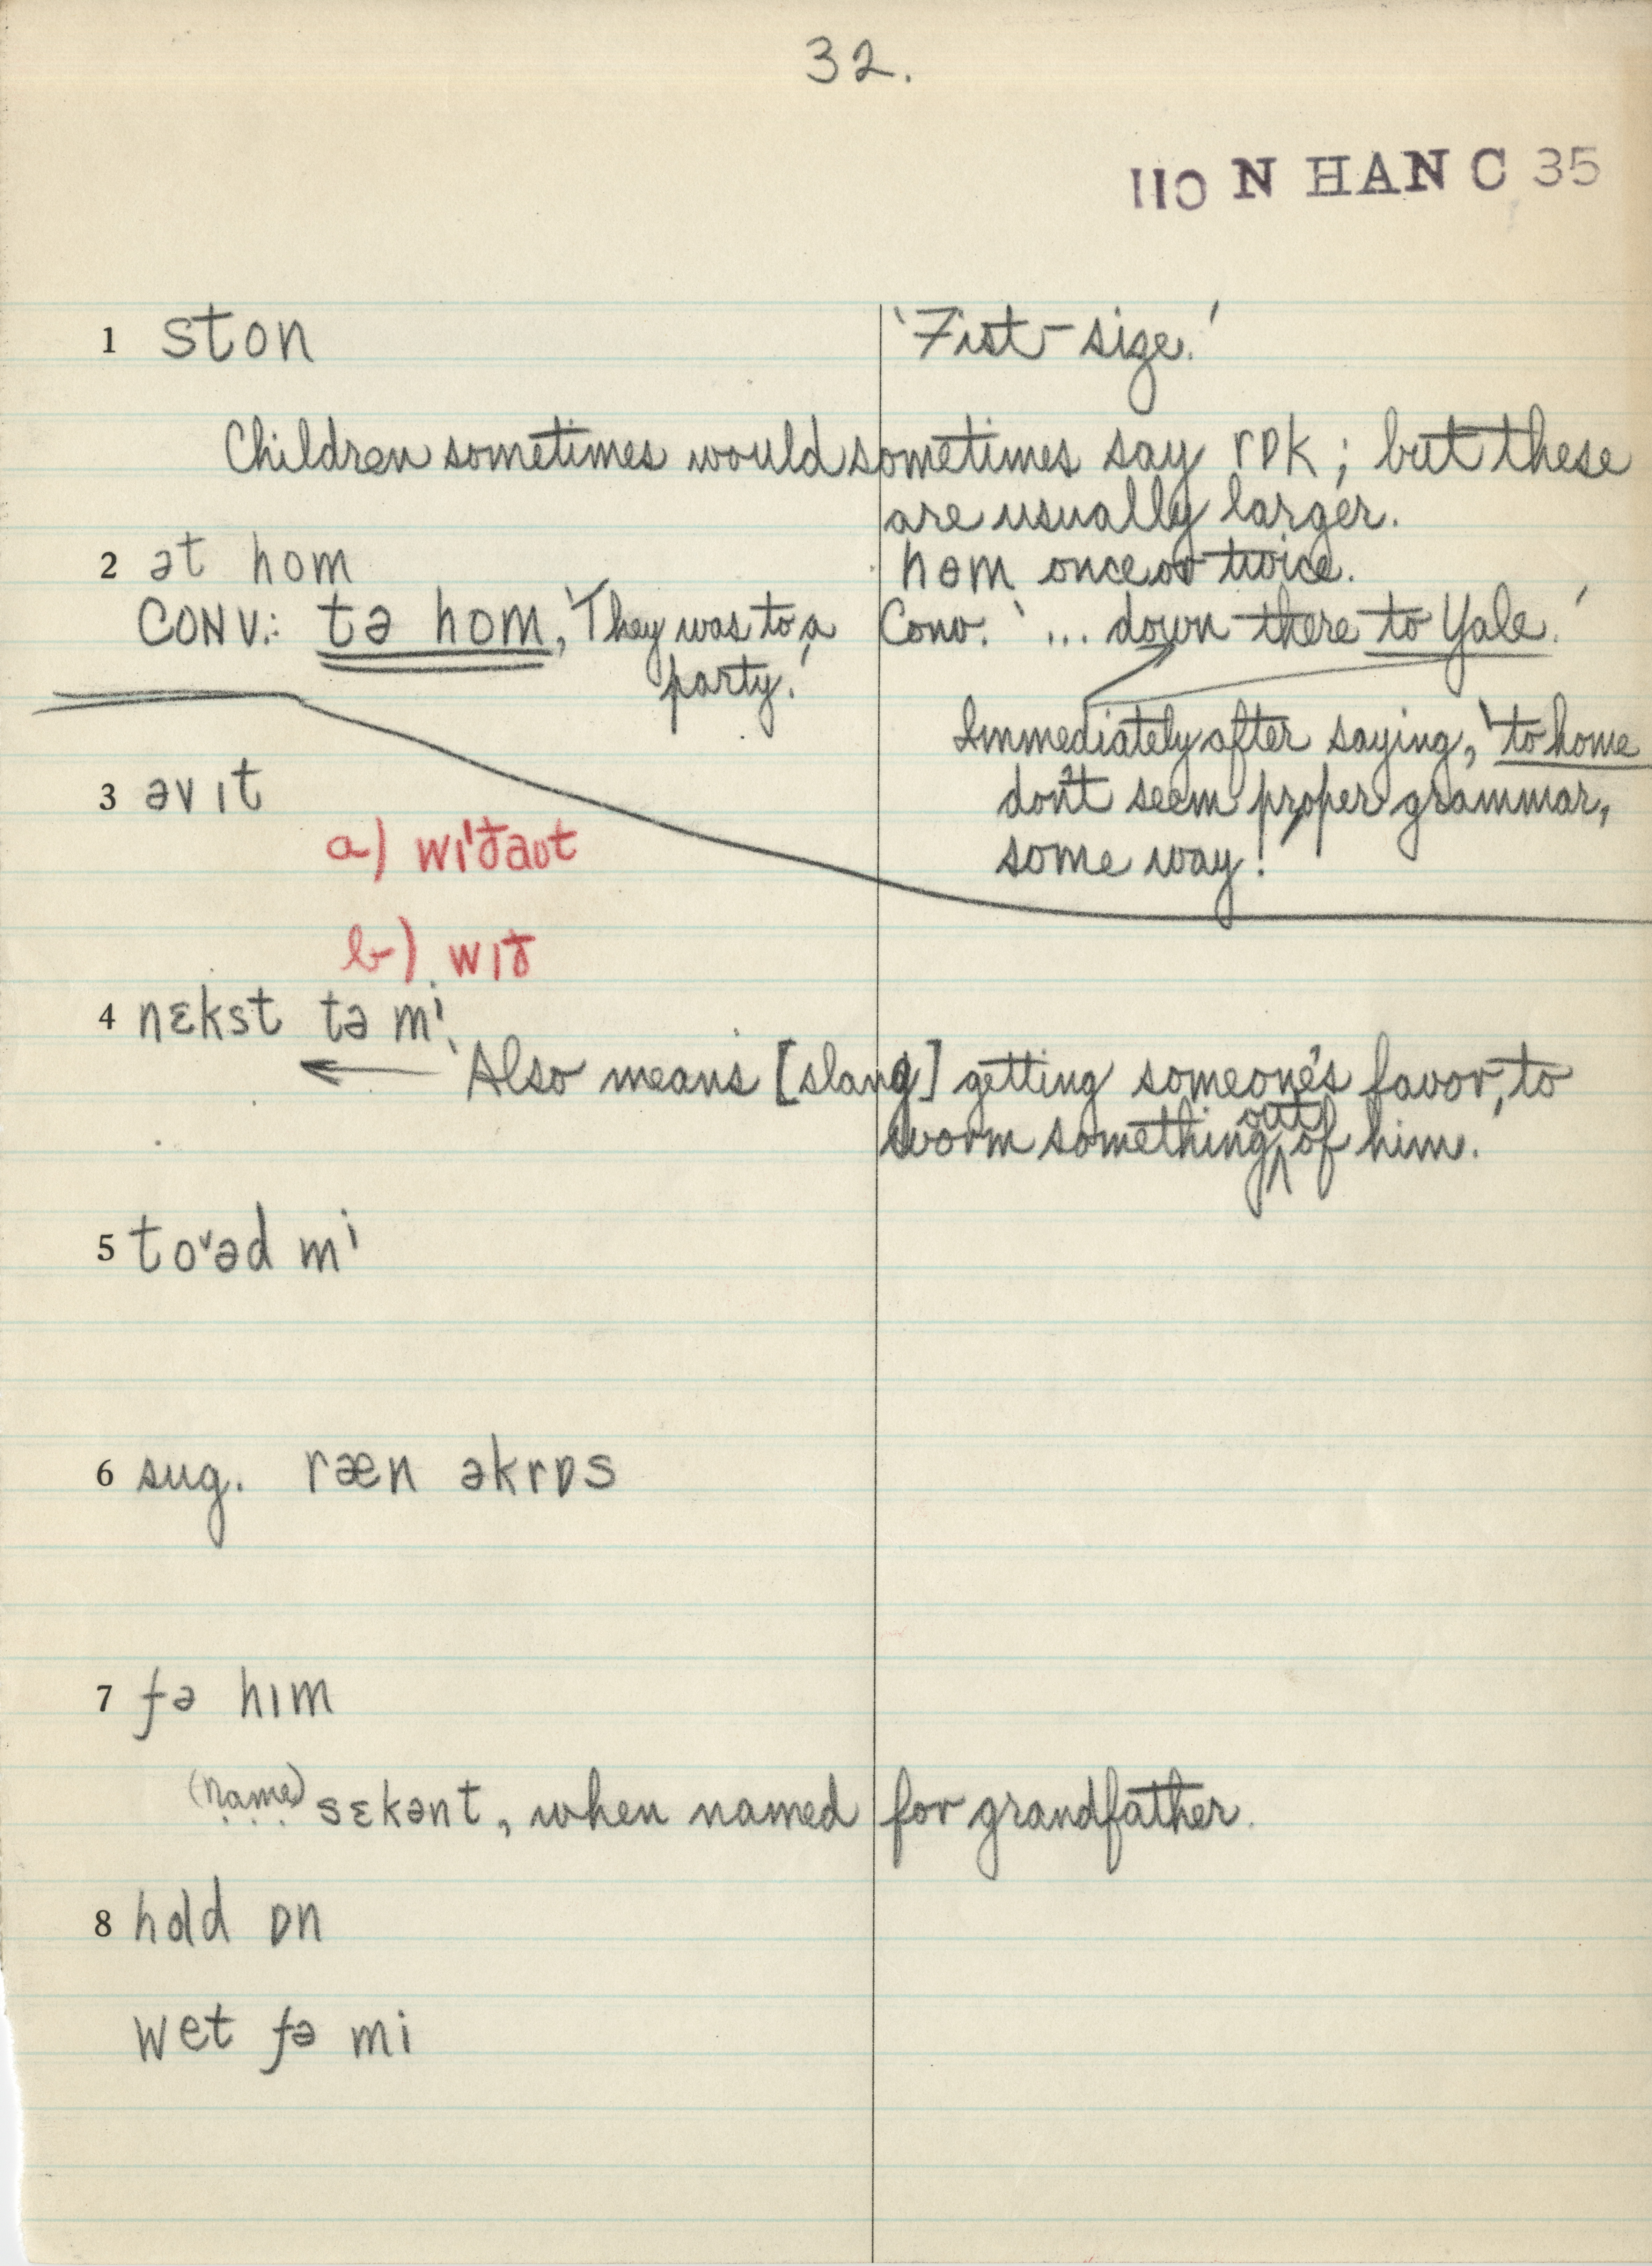 32.
110 N HAN C 35
1 ston 'Fist-size.'
Children sometimes would sometimes say rɒk; but these
are usually larger.
2 ət hom hɵm once or twice.
CONV.: tə hom, 'They was to a party.' Conv. '... down there to Yale.'
Immediately after saying, 'to home
don't seem proper grammar,
some way!'
3 əv ɪt
a) wɪ'ðaʊt
b) wɪð
4 nɛkst tə mi
'Also means [slang] getting someone's favor, to
worm something out of him.'
5 to˅əd mi
6 sug. ræn əkrɒs
7 fə hɪm
(name) sɛkənt, when named for grandfather.
8 hold ɒn
wet fə mi